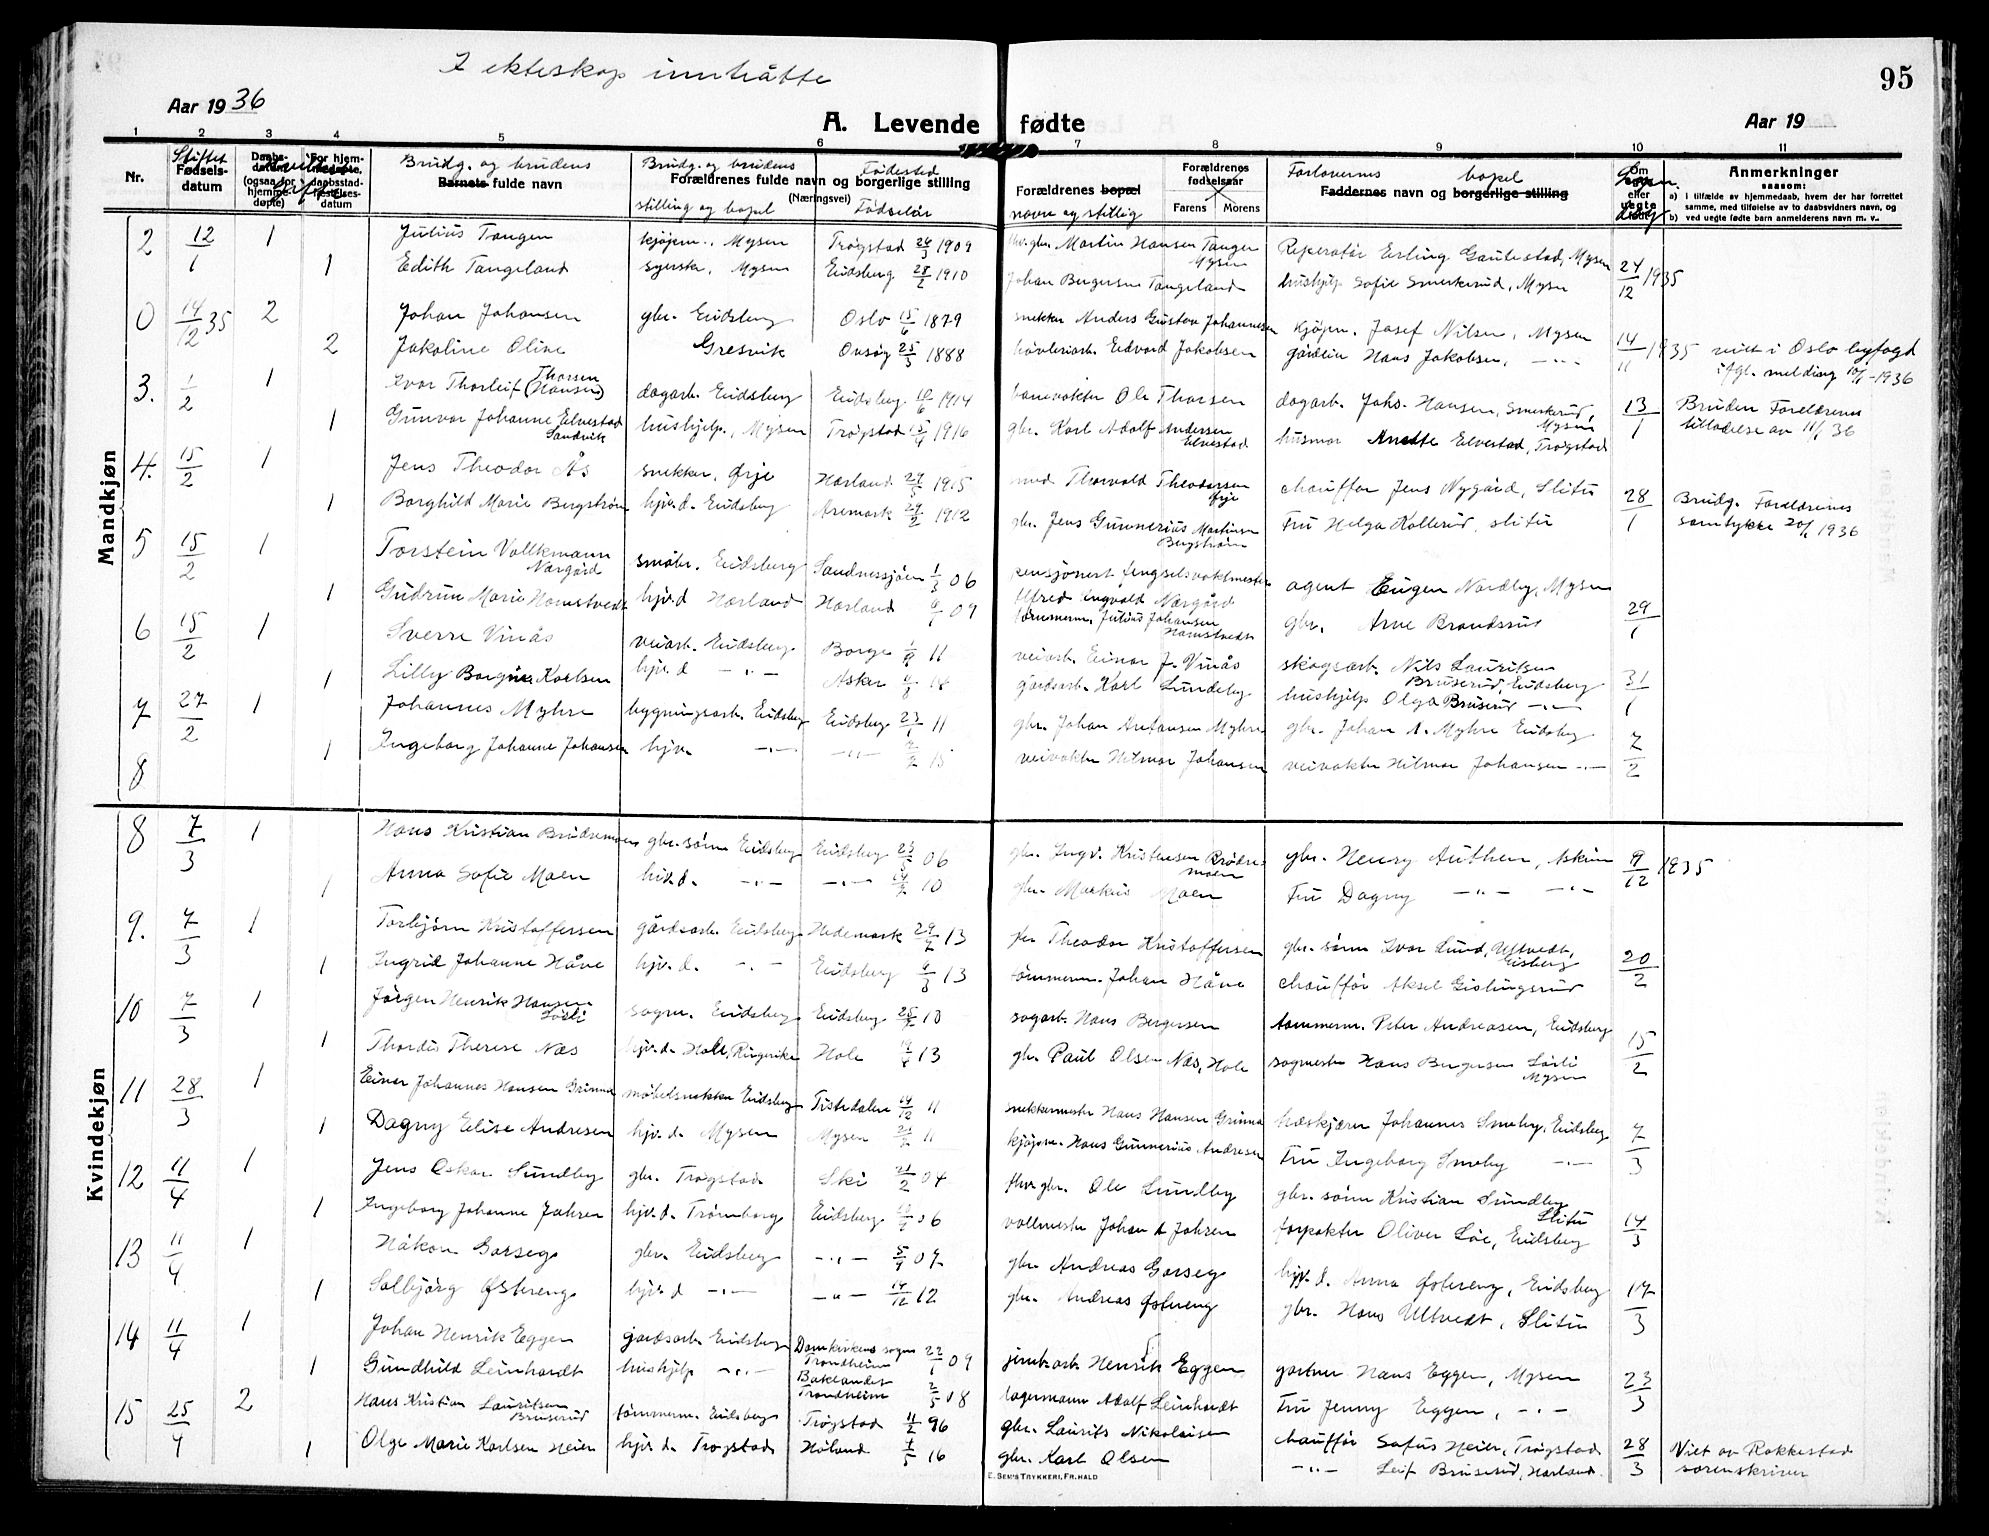 I ekteskap inntrådte
95
Aar 1936
A. Levende fødte
Aar 19
1 2 3 4 5 6 7 8 9 10 11
Nr.
Stiftet Fødsels-datum
Daabs-datum (ogsaa for hjemme-døpte)
For hjem-døpte, daabsstad-fæstelses-datum
Brudg. og brudens
Barnets fulde navn
Brudg. og brudens Fødested
Forældrenes fulde navn og borgerlige stilling
(Næringsvei)
stilling og bopel Fødselsår
Forældrenes bopæl
navn og stillig
Forældrenes fødselsaar
Farens Morens
Forloverens bopel
Faddernes navn og borgerlige stilling
Om egte eller uegte
Anmerkninger
saasom:
a) I tilfælde av hjemmedaab, hvem der har forrettet samme, med tilføielse av to daabsvidners navn, og
b) ved uegte fødte barn anmelderens navn m. v.
Mandkjøn
2 12/1 1 Julius Tangen kjøpm., Mysen Trøgstad 26/3 1909 Martin Hansen Tangen Mysen Reperatør Erling Gautestad, Mysen 24/12 1935
1 Edith Tangeland syerske, Mysen Eidsberg 28/2 1910 Johan Bergersen Tangeland hushjelp Sofie Smerkerud, Mysen
0 14/12 35 2 Johan Johansen gbr. Eidsberg Oslo 15/6 1879 snekker Anders Gustav Johannesen kjøpm. Josef Nilsen, Mysen 14/11 1935 viet i Oslo byfogd
2 Jakoline Oline Gresvik Onsøy 25/3 1888 høvleriarb. Edvard Jakobsen gårdein Hans Jakobsen, -"- ifgl. melding 10/1-1936
3. 1/2 1 Ivar Thorleif Thorsen (Hansen) dagarb. Eidsberg Eidsberg 10/6 1914 banevokter Ole Thorsen dagarb. Johs. Hansen, Smerkerud, Mysen 13/1 Bruden Foreldrenes
1 Gunvor Johanne Elvestad Sandvik hushjelp, Mysen Trøgstad 15/4 1916 gbr. Karl Adolf Andersen Elvestad husmor Anette Elvestad, Trøgstad tillatelse av 11/1 36
4. 15/2 1 Jens Theodor Ås snekker, Ørje Hærland 29/5 1915 Thorvald Theodorsen Ørje chauffør Jens Nygård, Slitu 28/1 Brudg. Foreldrenes
1 Borghild Marie Bergstrøm hjv.d. Eidsberg Aremark 29/2 1912 gbr. Jens Gunnerius Martinsen Bergstrøm Fru Helga Kollerud, Slitu samtykke 20/1 1936
5 15/2 1 Torstein Volkmann Nærgård smøbr. Eidsberg Sandnessjøen 1/3 06 pensjonert fengselsvaktmester Alfred Ingvald Nærgård agent Eugen Nordby, Mysen 29/1
1 Gudrun Marie Homstvedt hjv.d Hærland Hærland 09 tømmerm. Julius Johansen Homstvedt gbr. Arne Brandsrud
6 15/2 1 Sverre Vinås veiarb. Eidsberg Borge 11 veiarb. Einar J. Vinås skogsarb. Nils Lauritsen Bruserud, Eidsberg 31/1
1 Lilly Borgine Karlsen hjv.d -"- Asker 18 gårdsarb. Karl Lundeby hushjelp Olga Bruserud -"-
7 27/2 1 Johannes Myhre bygningsarb. Eidsberg Eidsberg 23/1 11 gbr. Johan Antonsen Myhre gbr. Johan A. Myhre Eidsberg 7/2
1 Ingeborg Johanne Johansen hjv. -"- -"- 15 veivokter Hilmar Johansen veivokter Hilmar Johansen -"-
8
Kvindekjøn
8 7/3 1 Hans Kristian Brødremoen gbr. sønn Eidsberg Eidsberg 06 gbr. Ingv. Kristensen Brødremoen gbr. Henry Authen, Askim 19/12 1935
1 Anna Sofie Moen hjv.d. -"- -"- 10 gbr. Markus Moen Fru Dagny -"- -"-
9. 7/3 1 Torbjørn Kristoffersen gårdsarb. Eidsberg Hedemark 29/7 13 Theodor Kristoffersen gbr. sønn Ivar Lund, Ultvedt, Eidsberg 20/2
1 Ingrid Johanne Håve hjv.d. -"- Eidsberg 13 tømmerm. Johan Håve chauffør Aksel Gislingsrud
10 7/3 1 Jørgen Henrik Hansen Løsli sagm. Eidsberg Eidsberg 10 sagarb. Hans Bergersen tømmerm. Peter Andreasen, Eidsberg 15/2
1 Thordis Therese Næs hjv.d. Hole, Ringerike Hole 13 gbr. Paul Olsen Næs, Hole sagmester Hans Bergersen Løsli Mysen
11 28/3 1 Einar Johannes Hansen Grimma møbelsnekker Eidsberg Tistedalen 11 snekkermester Hans Hansen Grimma Johannes Smeby, Eidsberg 7/3
1 Dagny Elise Andresen hjv.d. Mysen Mysen 11 kjøpm. Hans Gunnerius Andresen Fru Ingeborg Smeby -"-
12 11/4 1 Jens Oskar Sundby gbr. Trøgstad Ski 21/2 04 Ole Sundby gbr. sønn Kristian Sundby Slitu 14/3
1 Ingeborg Johanne Jahren hjv.d. Trømborg Eidsberg 06 vollmester Johan A Jahren forpakter Oliver Løe, Eidsberg
13 11/4 1 Håkon Garseg gbr. Eidsberg -"- 07 gbr. Andreas Garseg hjv.d. Anna Østereng, Eidsberg 17/3
1 Solbjørg Østereng hjv.d -"- -"- 14/12 12 gbr. Andreas Østereng gbr. Hans Ultvedt, Slitu
14 11/4 1 Johan Henrik Eggen gårdsarb. Eidsberg Domkirkens sogn Trondheim 22/1 09 jernb.arb. Henrik Eggen gartner Hans Eggen, Mysen 23/3
1 Gundhild Leinhardt hushjelp -"- Baklandet Trondheim 2/5 08 lagermann Adolf Leinhardt Fru Jenny Eggen, -"-
15 25/4 2 Hans Kristian Lauritsen Bruserud tømmerm. Eidsberg Trøgstad 11/2 96 gbr. Laurits Nikolaisen chauffør Sofus Heier, Trøgstad 28/3 Viet av Rakkestad
1 Olge Marie Karlsen Heier hjv.d. Trøgstad Høland 1/5 16 gbr. Karl Olsen -"- Leif Bruserud, Hærland. sorenskriver
E. SEM'S TRYKKERI, FR.HALD